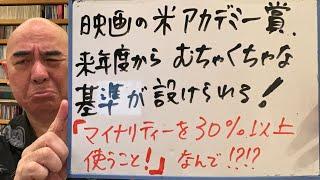 映画の米アカデミー賞、
来年度から むちゃくちゃな
基準が設けられる!
「マイナリティーを30%以上
使うこと!」なんで!?!?